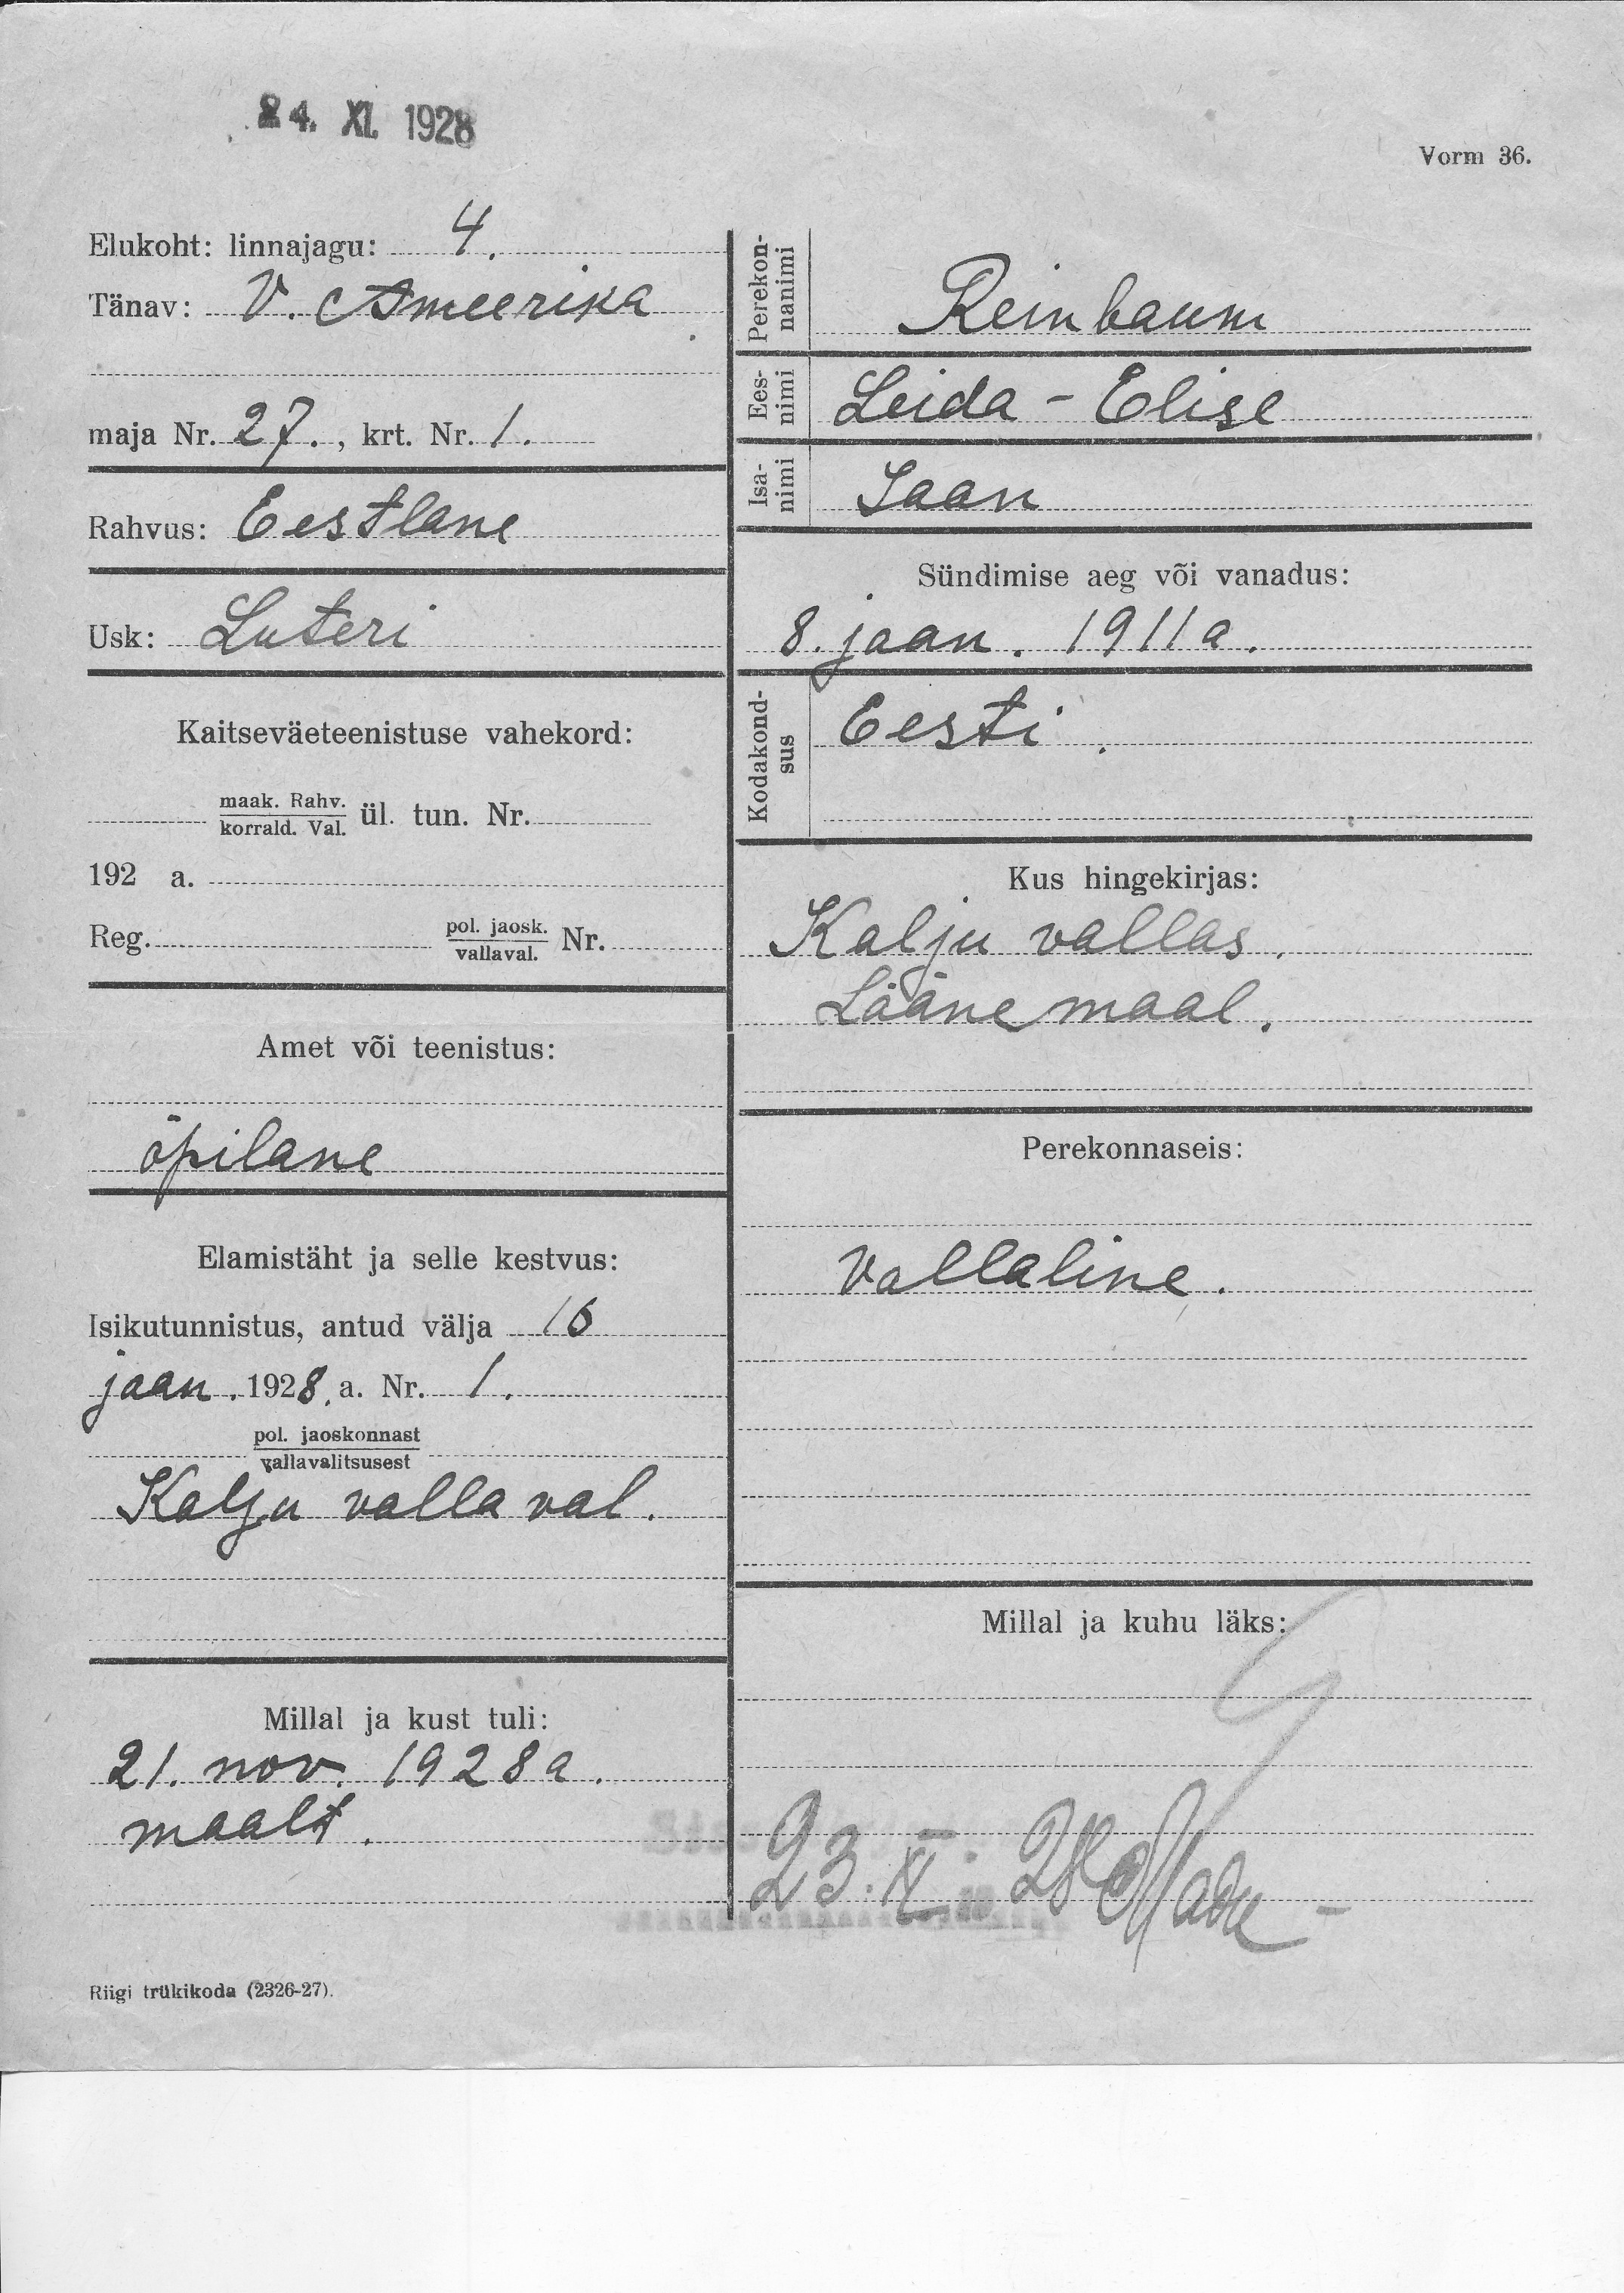 24. XI. 1928
Vorm 36.
Elukoht: linnajagu: 4.
Tänav: V. Ameerika
maja Nr. 27., krt. Nr. 1.
Rahvus: Eestlane
Usk: Luteri
Kaitseväeteenistuse vahekord:
maak. Rahv.
korrald. Val. ül. tun. Nr.
192 a.
Reg. pol. jaosk. Nr.
vallaval.
Amet või teenistus:
õpilane
Elamistäht ja selle kestvus:
Isikutunnistus, antud välja 16
jaan. 1928. a. Nr. 1.
pol. jaoskonnast
vallavalitsusest
Kalju valla val.
Millal ja kust tuli:
21. nov. 1928 a.
maalt.
Riigi trükikoda (2326-27).
Perekon-
nanimi
Reinbaum
Ees-
nimi
Leida - Elise
Isa-
nimi
Jaan
Sündimise aeg või vanadus:
8. jaan. 1911 a.
Kodakond-
sus
Eesti.
Kus hingekirjas:
Kalju vallas.
Läänemaal.
Perekonnaseis:
Vallaline.
Millal ja kuhu läks:
23.